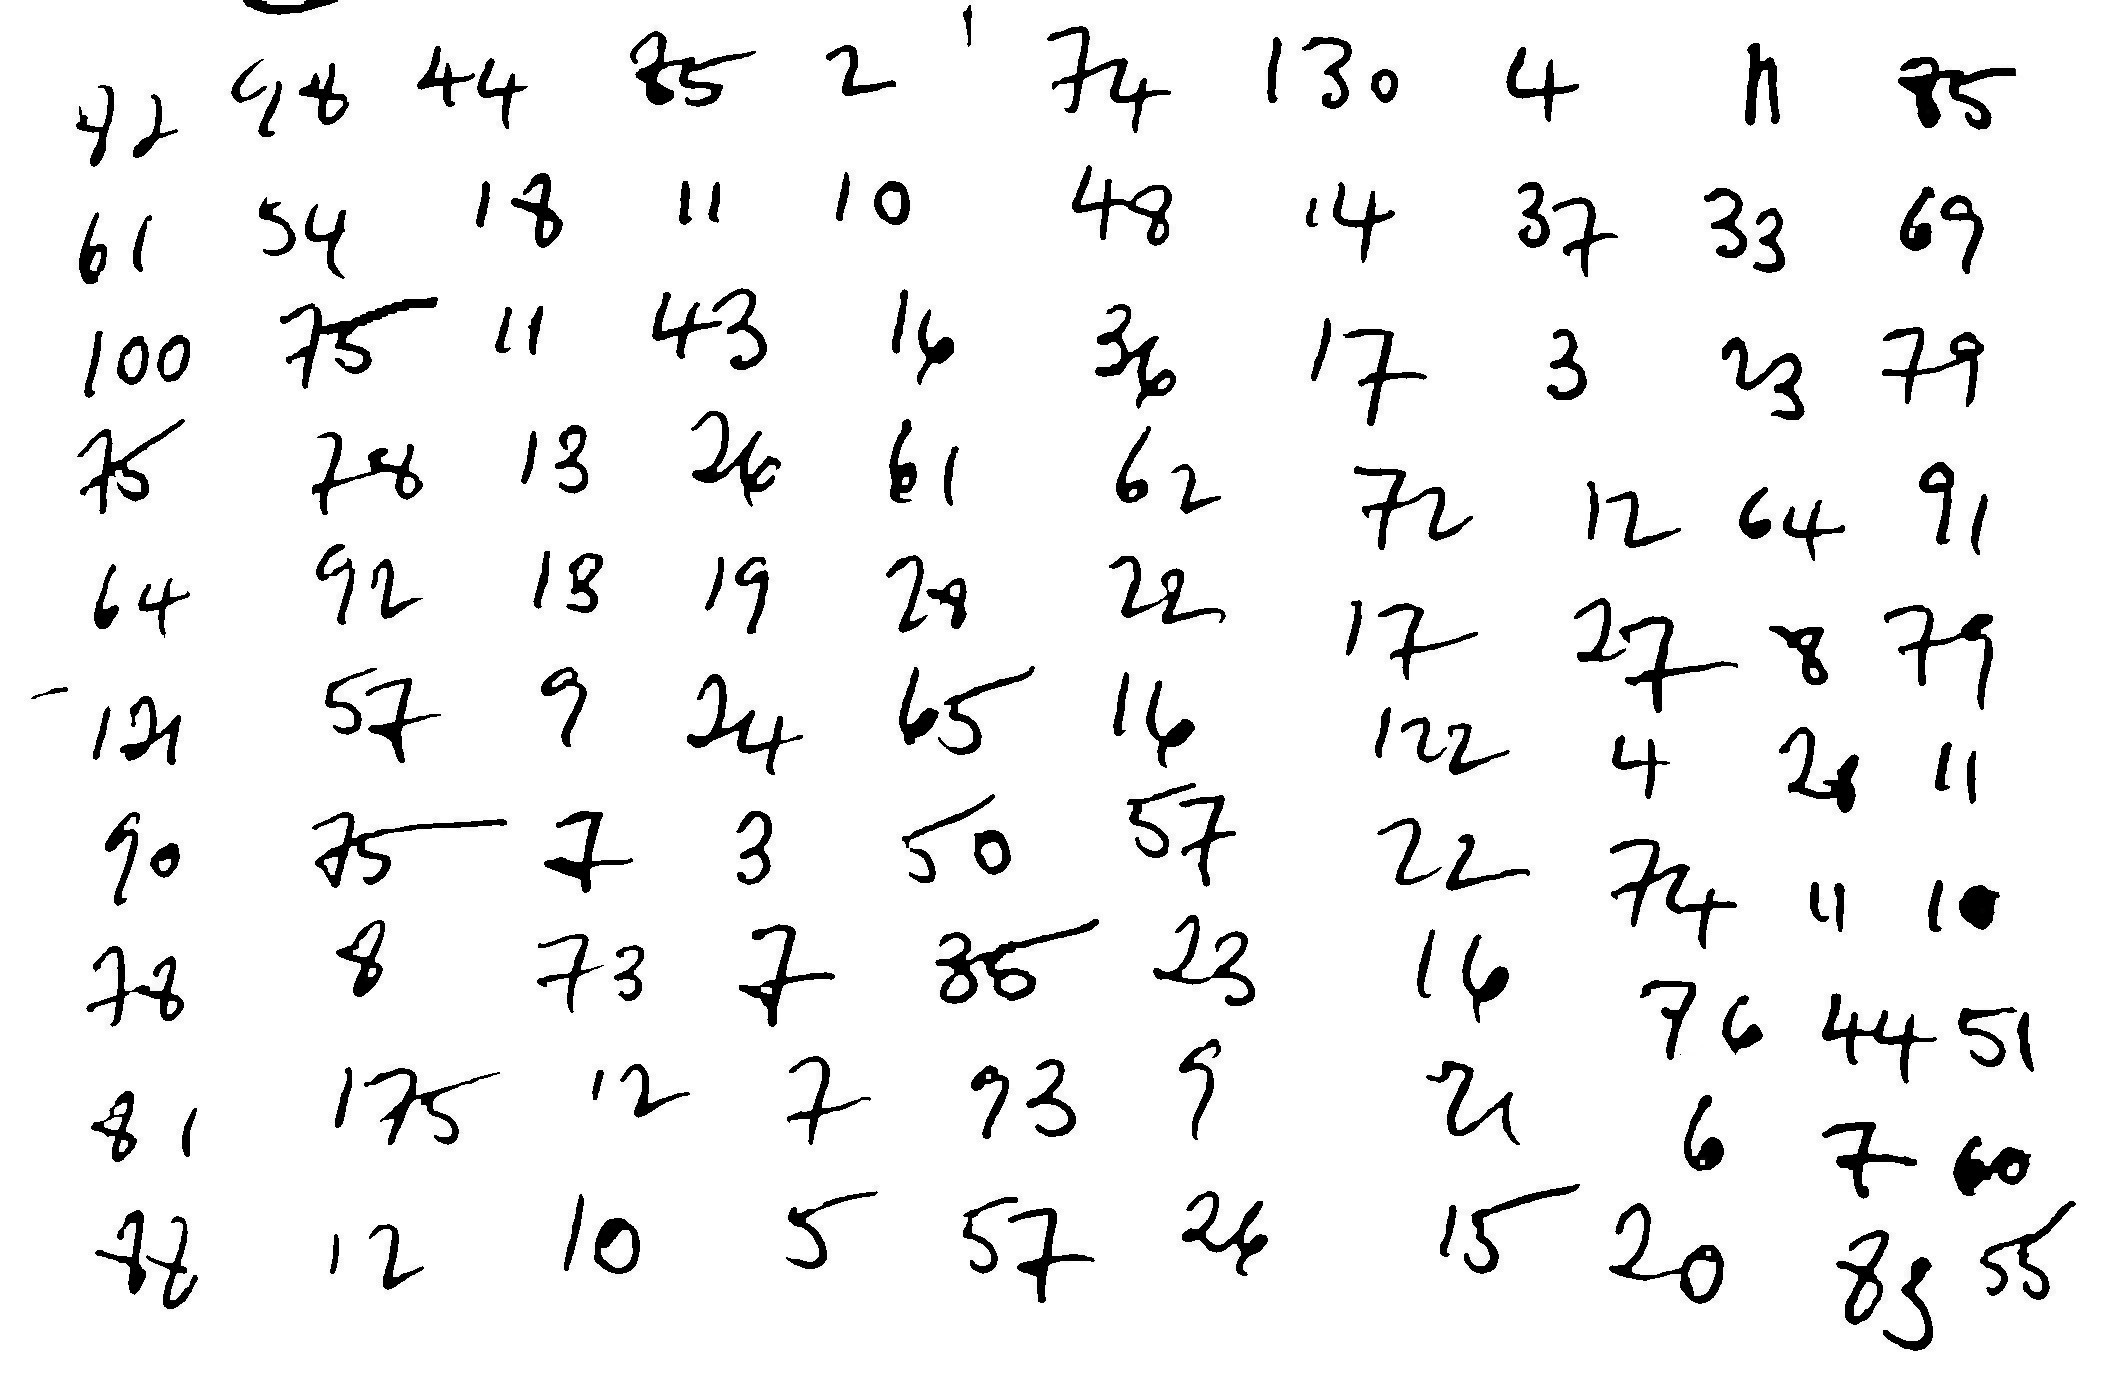 92 98 44 85 2 74 130 4 11 85
61 54 18 11 10 48 14 37 33 69
100 75 11 43 16 36 17 3 23 79
75 78 13 26 61 62 72 12 64 91
64 92 13 19 28 22 17 27 8 79
121 57 9 24 65 16 122 4 28 11
90 75 7 3 50 57 22 74 11 10
78 8 73 7 85 23 16 76 44 51
81 175 12 7 93 9 21 6 7 60
88 12 10 5 57 26 15 20 83 55